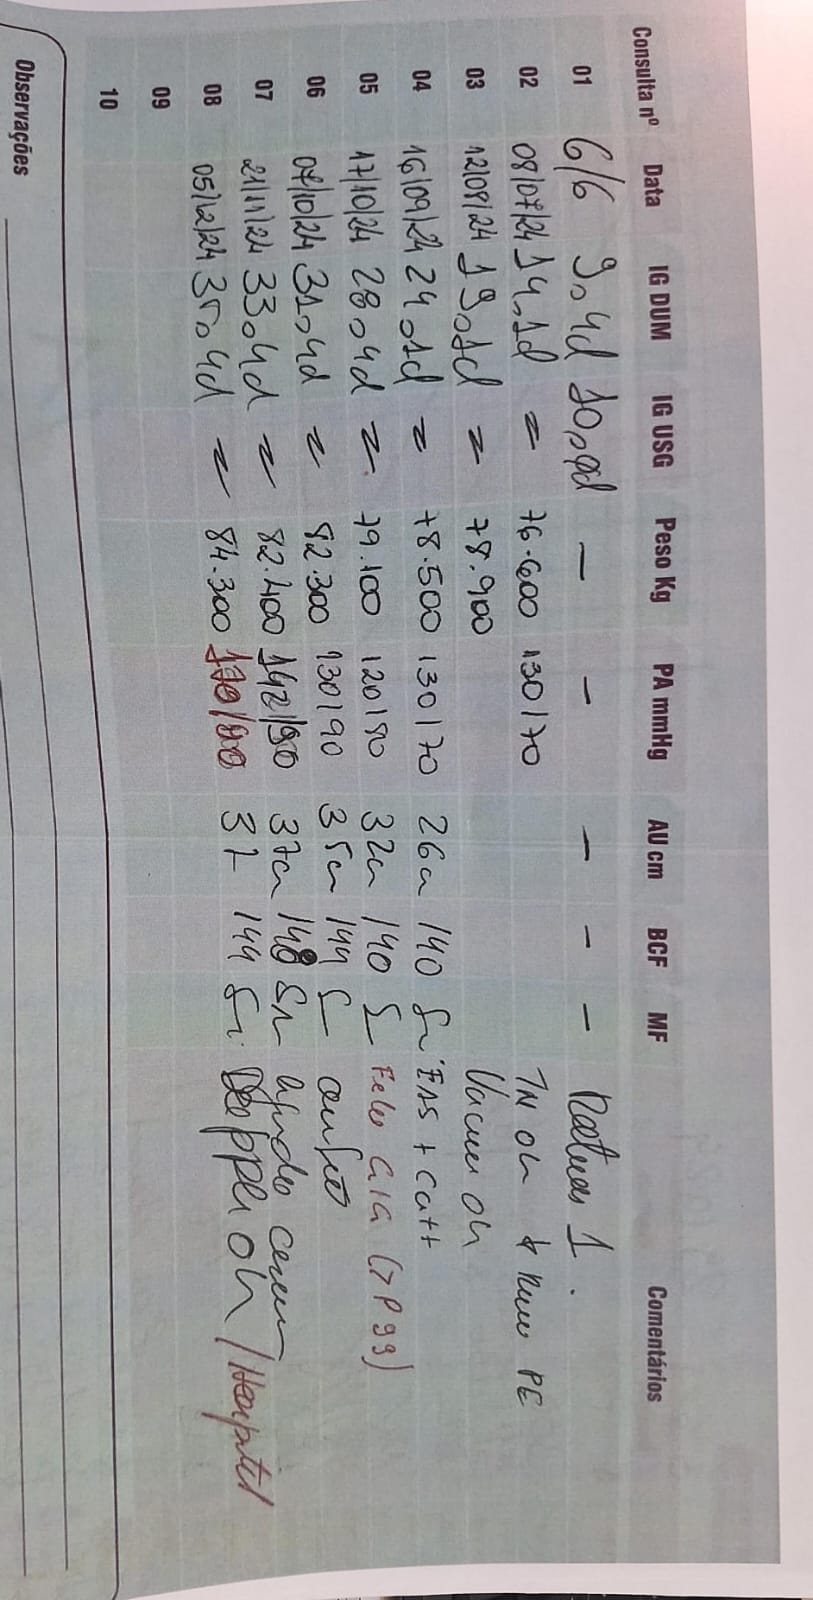 Consulta nº Data IG DUM IG USG Peso Kg PA mmHg AU cm BCF MF Comentários
01 6/6 9s4d 10s0d - - - - - 1.
02 08/07/24 14s1d = 76.600 130/70 TN OK + PE
03 12/08/24 19s1d = 78.900 OK
04 16/09/24 24s1d = 78.500 130/70 26cm 140 EAS +
05 17/10/24 28s4d = 79.100 120/80 32cm 140 Feto GIG (>P99)
06 07/10/24 31s4d = 82.300 130/90 35cm 144
07 21/11/24 33s4d = 82.400 142/90 37cm 148
08 05/12/24 35s4d = 84.300 37 144 Doppler OK / Hospital
09
10
Observações